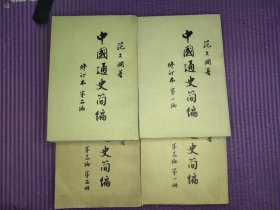 范文澜著
中國通史简编
修订本 第二编
范文澜著
中國通史简编
修订本 第一编
史简编
第三编 第二册
史简编
第三编 第一册